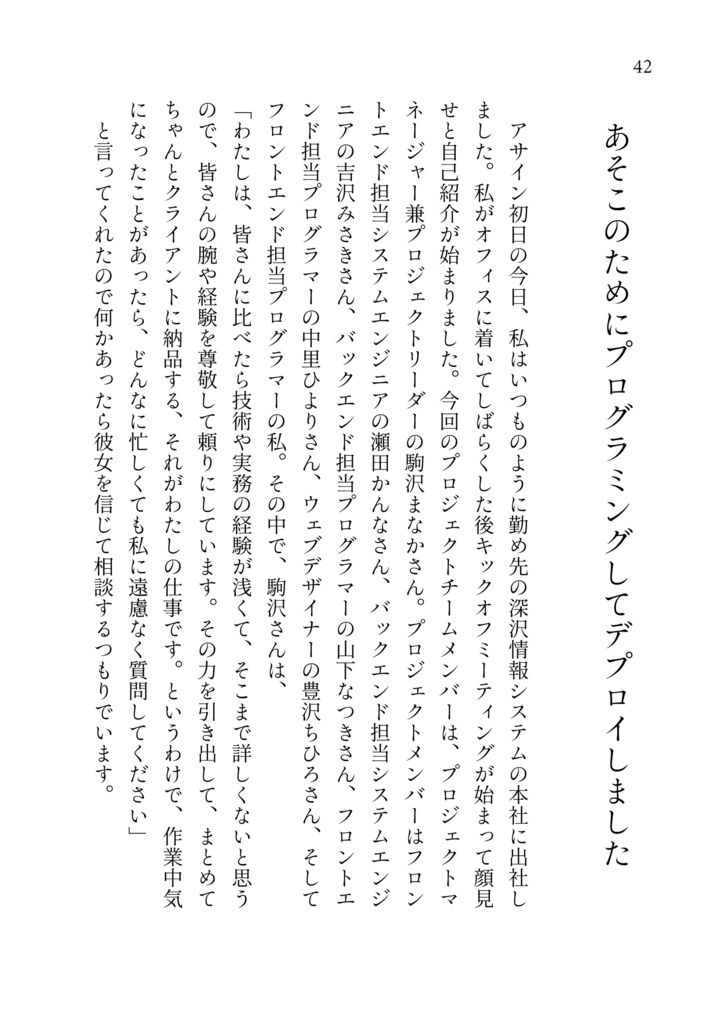 42
あそこのためにプログラミングしてデプロイしました
アサイン初日の今日、私はいつものように勤め先の深沢情報システムの本社に出社し
ました。私がオフィスに着いてしばらくした後キックオフミーティングが始まって顔見
せと自己紹介が始まりました。今回のプロジェクトチームメンバーは、プロジェクトマ
ネージャー兼プロジェクトリーダーの駒沢まなかさん。プロジェクトメンバーはフロン
トエンド担当システムエンジニアの瀬田かんなさん、バックエンド担当システムエンジ
ニアの吉沢みさきさん、バックエンド担当プログラマーの山下なつきさん、フロントエ
ンド担当プログラマーの中里ひよりさん、ウェブデザイナーの豊沢ちひろさん、そして
フロントエンド担当プログラマーの私。その中で、駒沢さんは、
「わたしは、皆さんに比べたら技術や実務の経験が浅くて、そこまで詳しくないと思う
ので、皆さんの腕や経験を尊敬して頼りにしています。その力を引き出して、まとめて
ちゃんとクライアントに納品する、それがわたしの仕事です。というわけで、作業中気
になったことがあったら、どんなに忙しくても私に遠慮なく質問してください」
と言ってくれたので何かあったら彼女を信じて相談するつもりでいます。